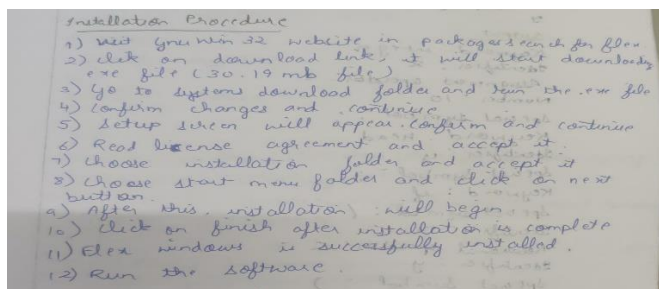 Installation Procedure
1) Visit Gnu Win 32 website in packages search for flex
2) click on download link, it will start downloading
exe file (30.19 mb file)
3) Go to systems download folder and run the .exe file
4) Confirm changes and continue
5) Setup screen will appear. confirm and continue
6) Read license agreement and accept it.
7) choose installation folder and accept it
8) choose start menu folder and click on next
button.
9) After this, installation will begin
10) click on finish after installation is complete
11) Flex windows is successfully installed.
12) Run the software.